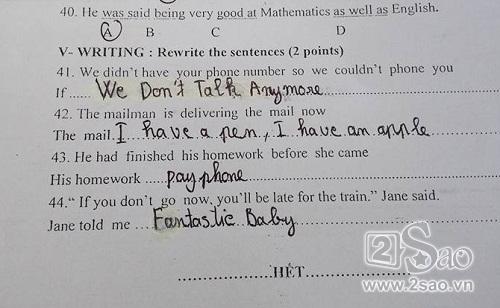 40. He was said being very good at Mathematics as well as English.
A B C D
V- WRITING : Rewrite the sentences (2 points)
41. We didn't have your phone number so we couldn't phone you
If ...... We Don't Talk Anymore ..................
42. The mailman is delivering the mail now
The mail. I have a pen, I have an apple ......
43. He had finished his homework before she came
His homework ..... payphone ..............................
44.“ If you don't go now, you'll be late for the train.” Jane said.
Jane told me .... Fantastic Baby ..............................
2Sao
..............................HẾT..........................
www.2sao.vn